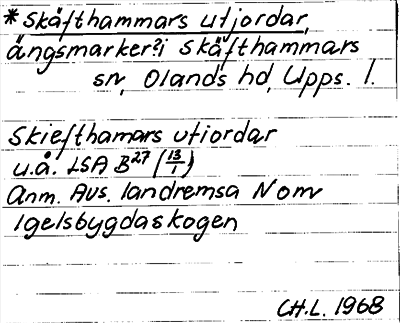 *Skäfthammars utjordar,
ängsmarker? i Skäfthammars
sn, Olands hd, Upps. l.
Skiefthamars utiordar
u.å. LSA B27 (13/1)
Anm. Avs. landremsa Nom
Igelsbygdaskogen
CH.L. 1968